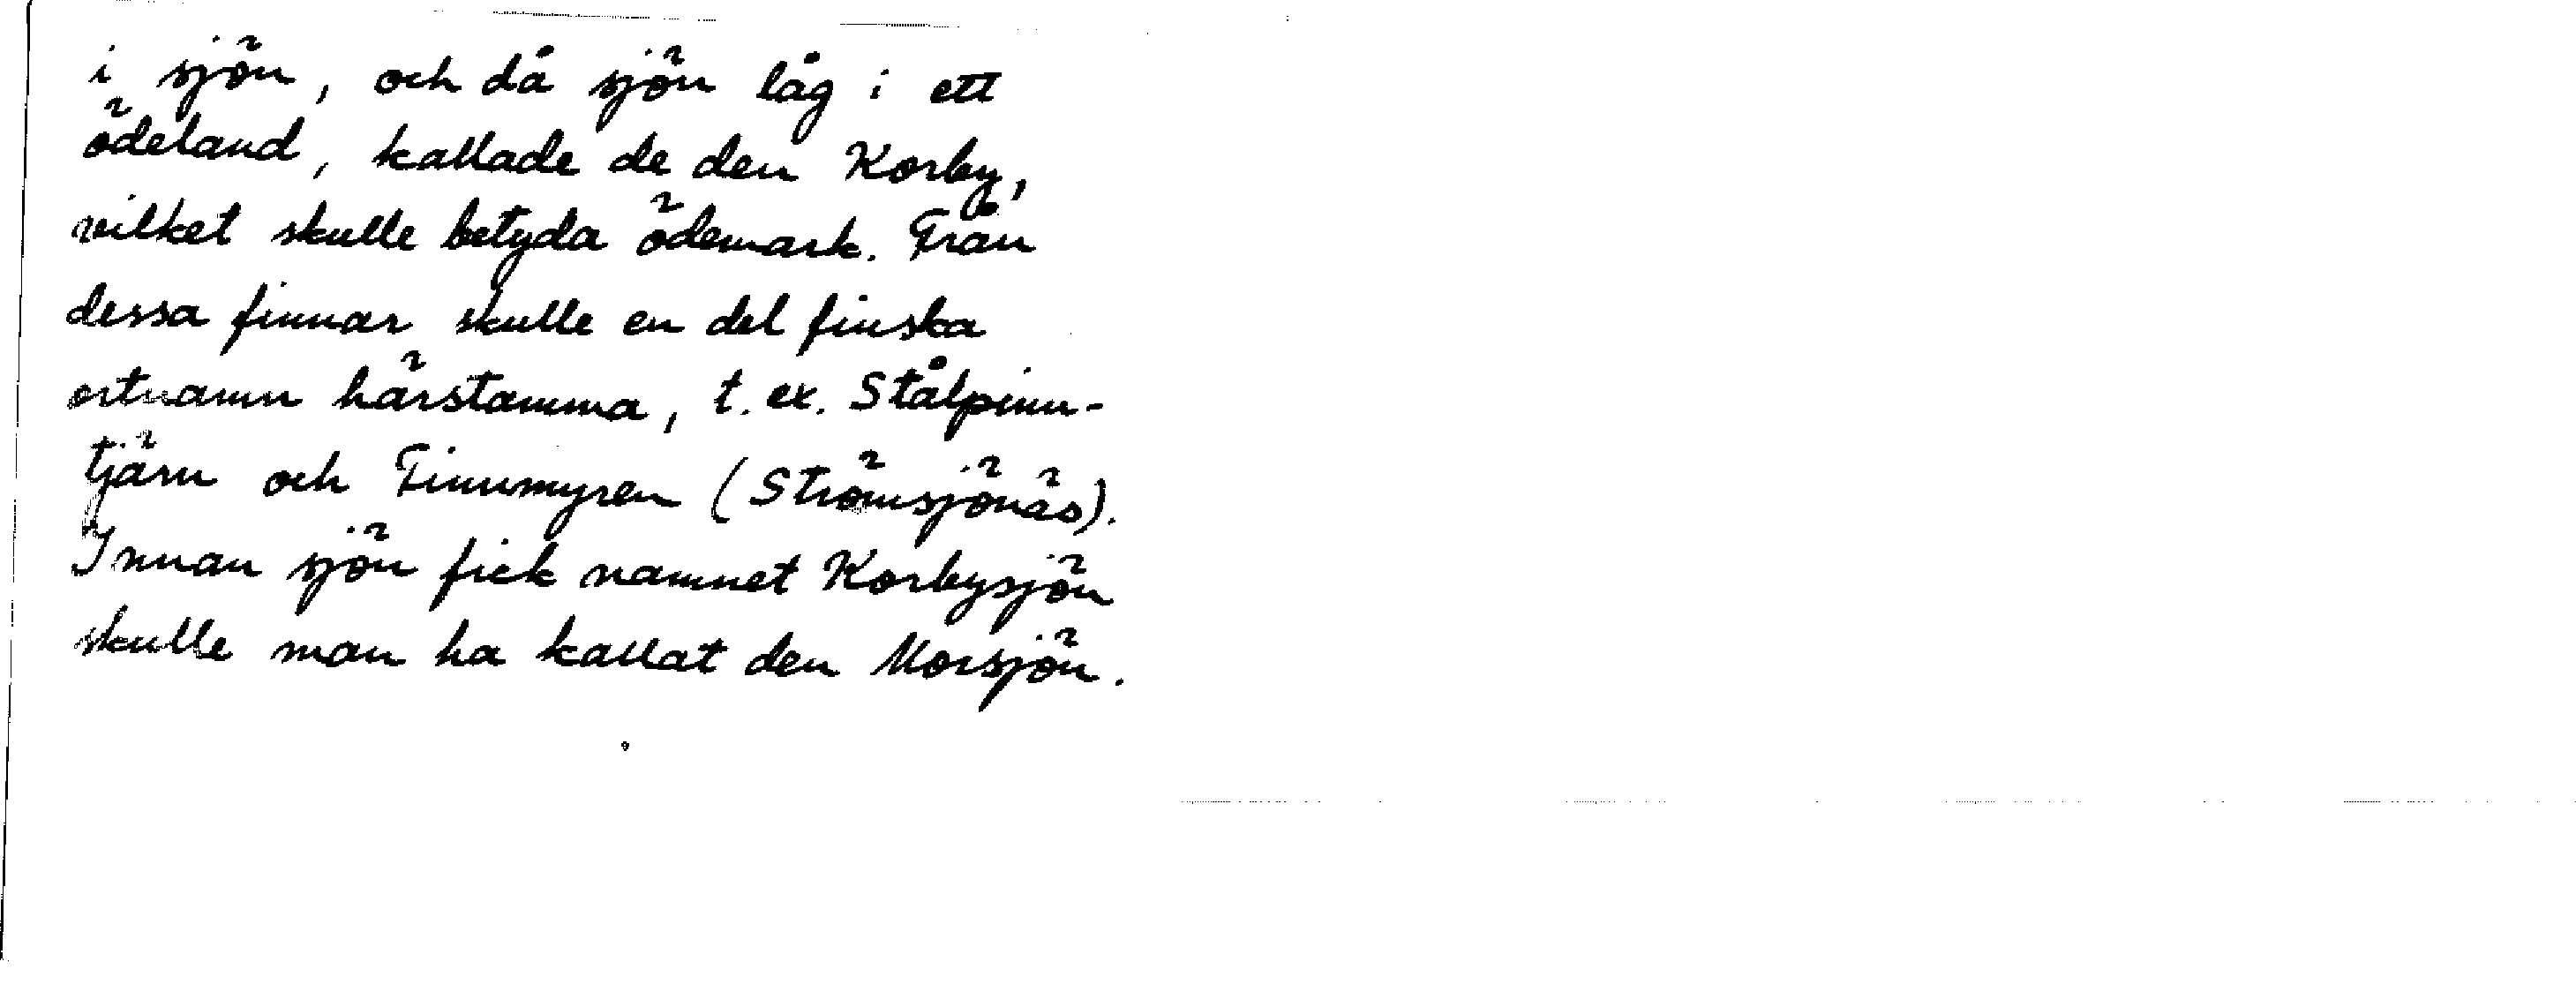 i sjön, och då sjön låg i ett
ödeland, kallade de den Korby,
vilket skulle betyda ödemark. Från
dessa finnar skulle en del finska
ortnamn härstamma, t. ex. Stålpinn-
tjärn och Finnmyren (Strömsjönäs).
Innan sjön fick namnet Korbysjön
skulle man ha kallat den Morsjön.